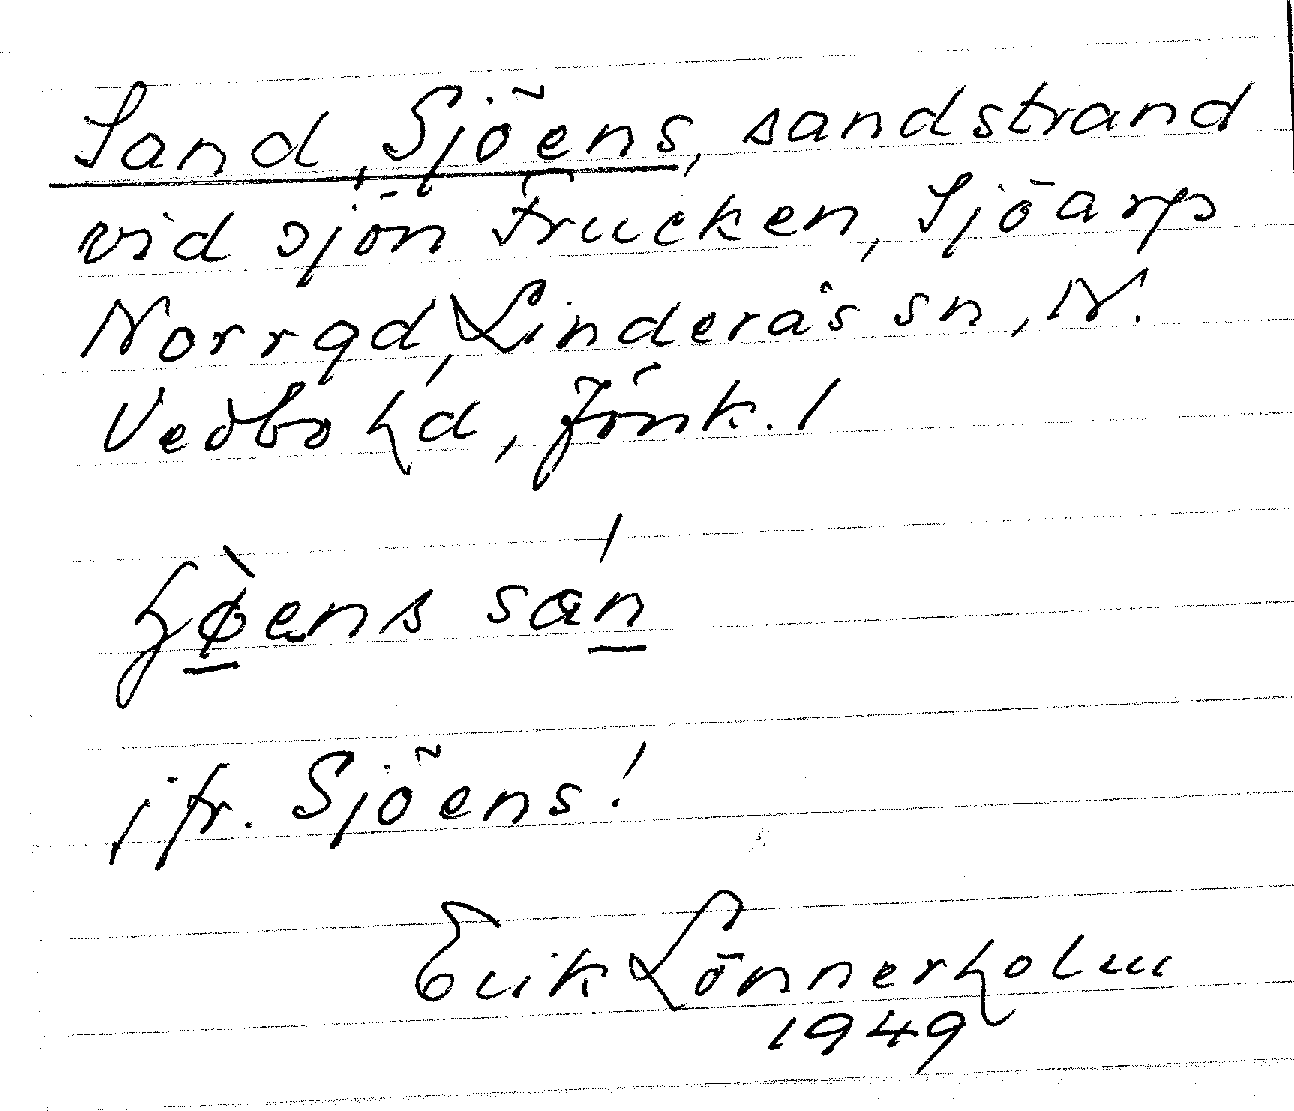 Sand, Sjöens, sandstrand
vid sjön Trucken, Sjöarp
Norrgd, Linderås sn, N.
Vedbo hd, Jönk. l
sán
jfr. Sjöens!
Erik Lönnerholm
1949